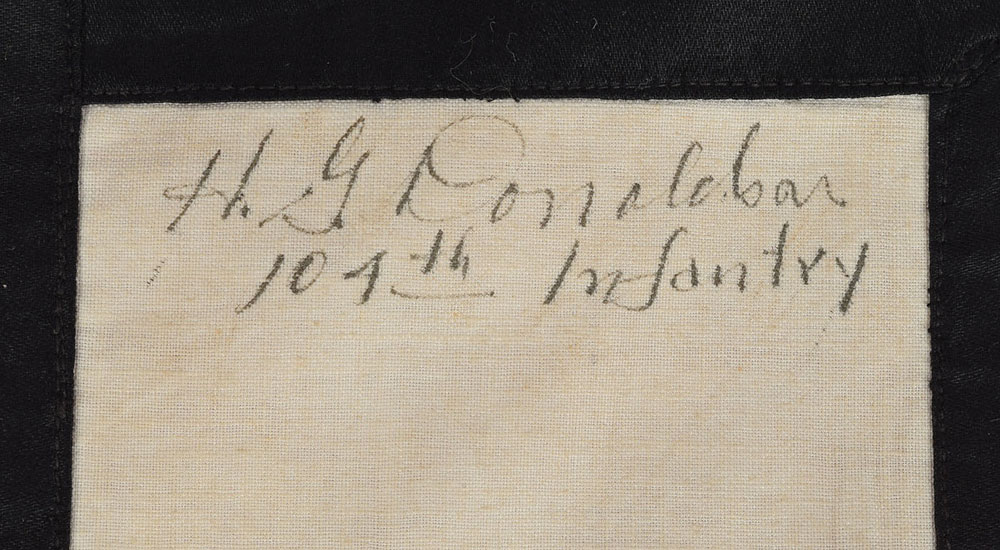 H. G. Donaldson
104th Infantry